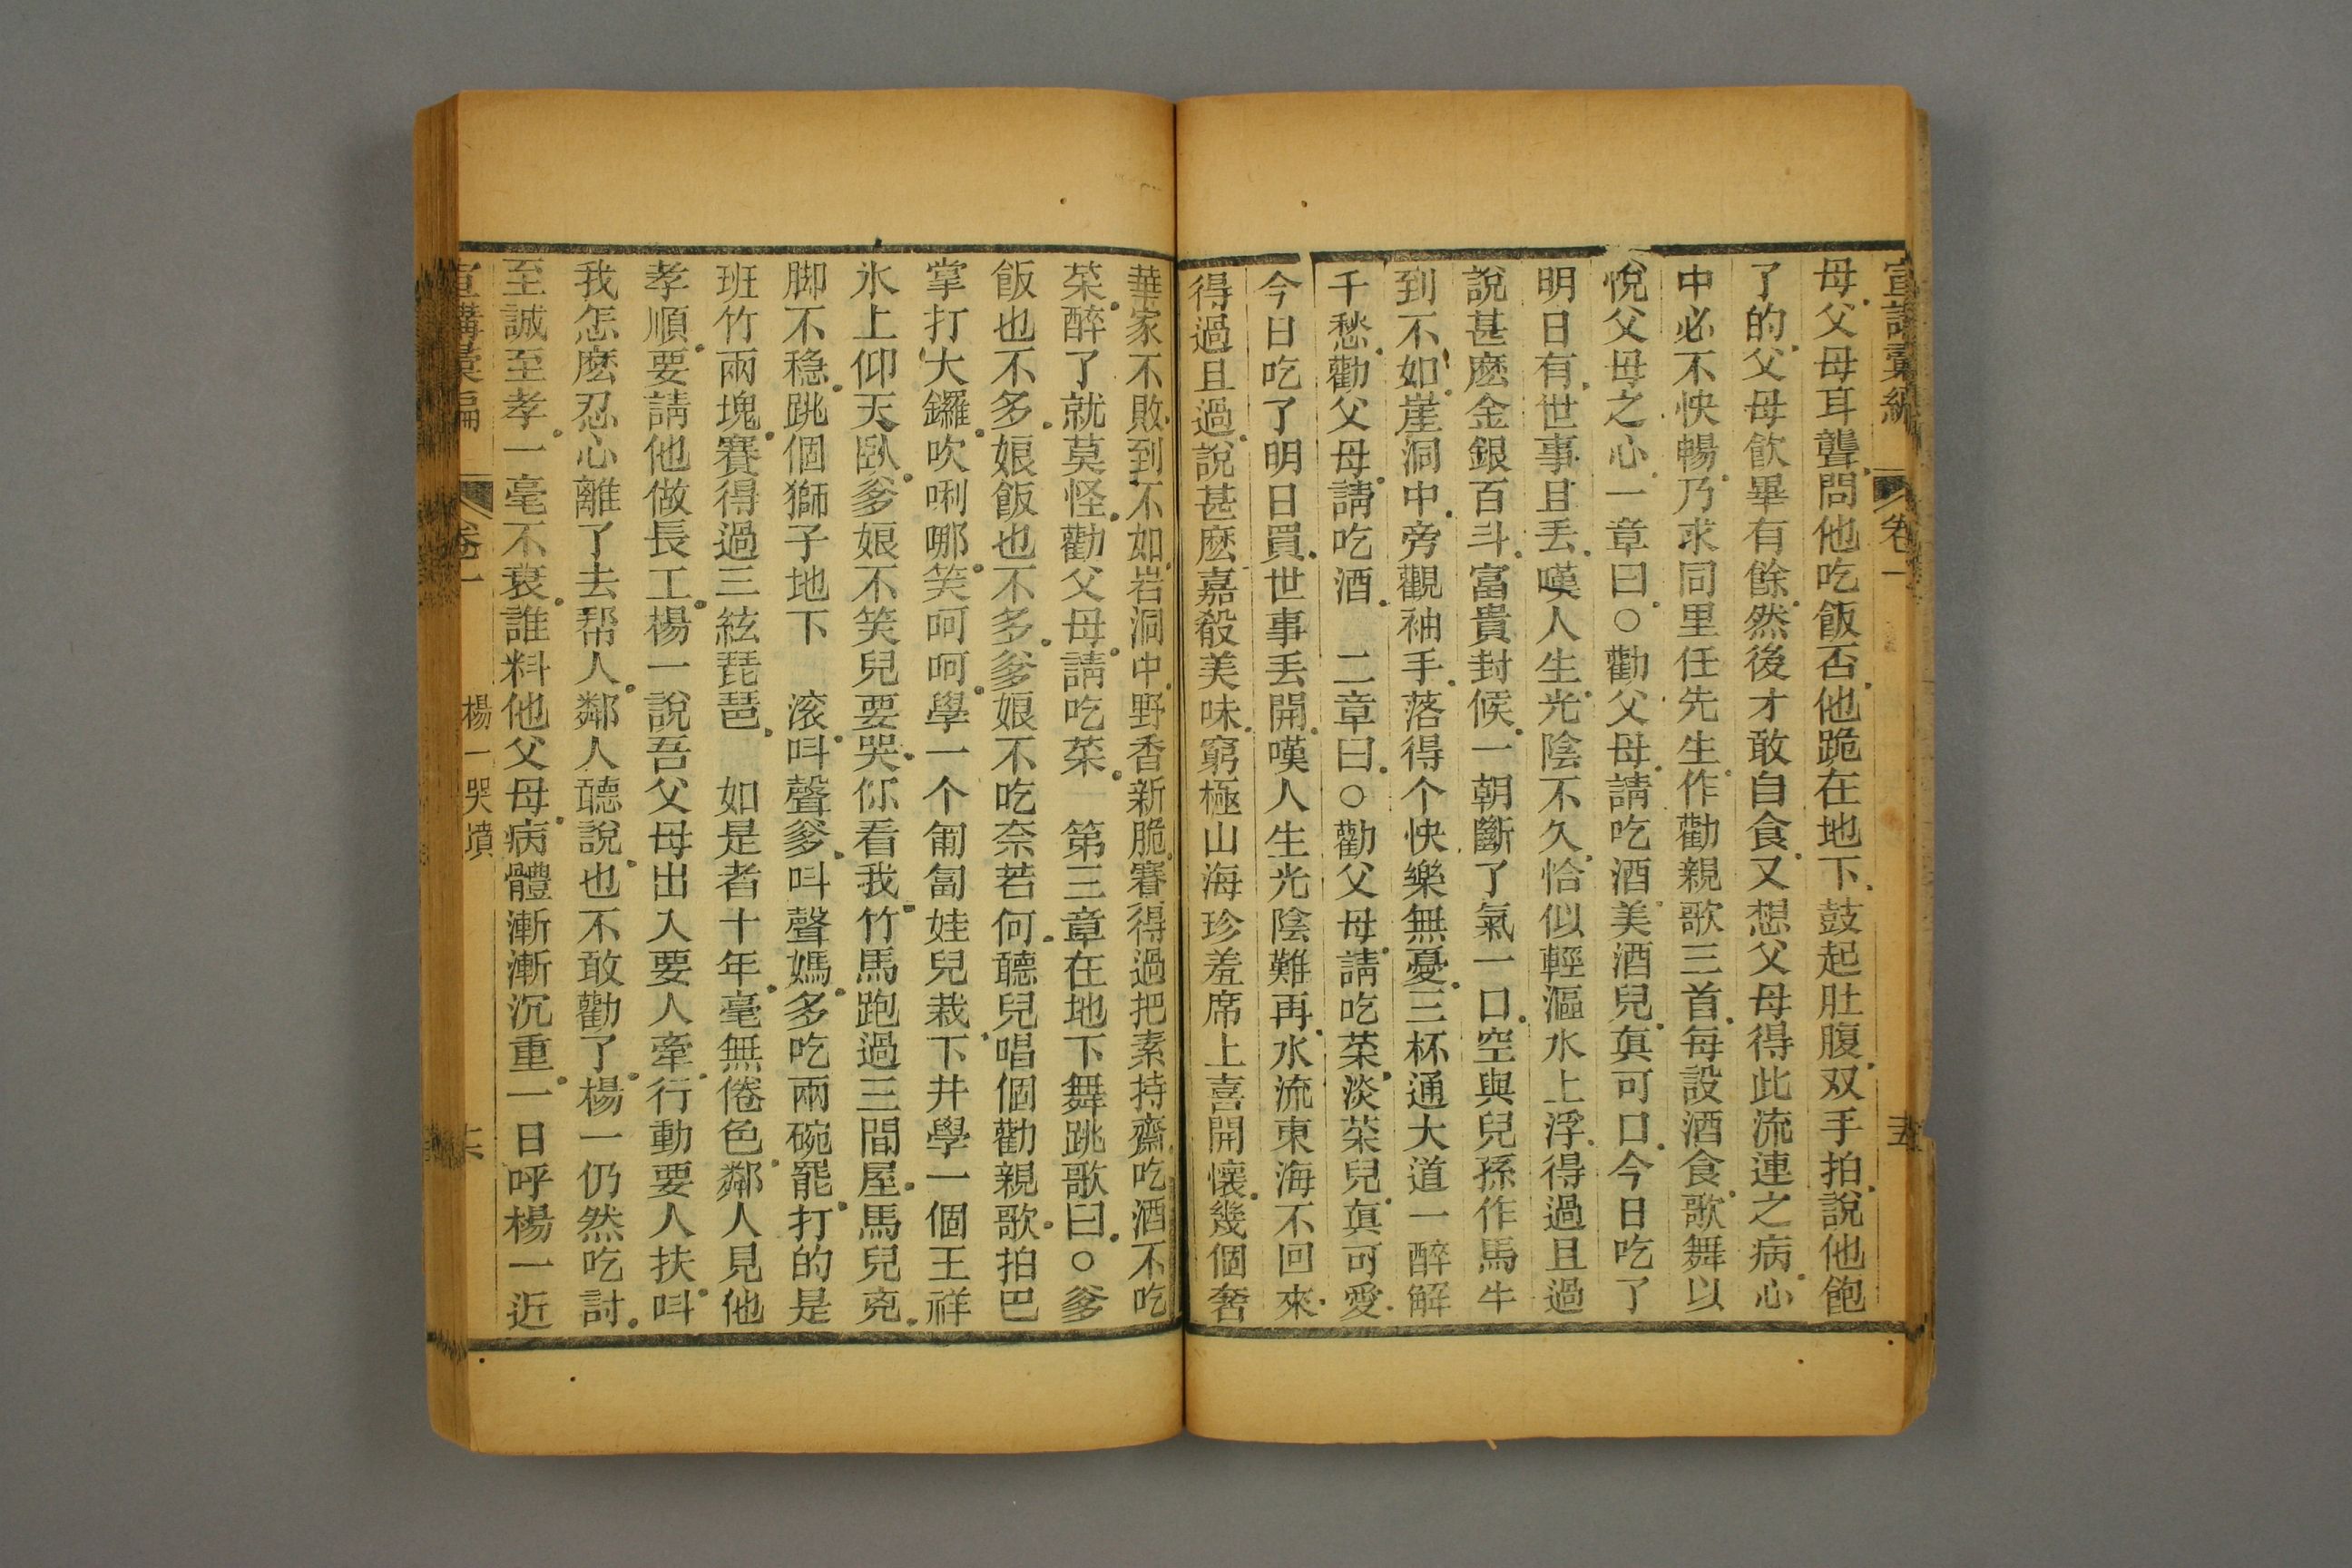 宣講彙編 卷一 五
母父母耳聾問他吃飯否他跪在地下鼓起肚腹双手拍說他飽
了的父母飲畢有餘然後才敢自食又想父母得此流連之病心
中必不快暢乃求同里任先生作勸親歌三首每設酒食歌舞以
悅父母之心一章曰○勸父母請吃酒美酒兒真可口今日吃了
明日有世事且丢嘆人生光陰不久恰似輕漚水上浮得過且過
說甚麽金銀百斗富貴封候一朝斷了氣一口空與兒孫作馬牛
到不如崖洞中旁觀袖手落得个快樂無憂三杯通大道一醉解
千愁勸父母請吃酒 二章曰○勸父母請吃菜淡菜兒真可愛
今日吃了明日買世事丢開嘆人生光陰難再水流東海不回來
得過且過說甚麽嘉殽美味窮極山海珍羞席上喜開懷幾個奢
華家不敗到不如岩洞中野香新脆賽得過把素持齋吃酒不吃
菜醉了就莫怪勸父母請吃菜 第三章在地下舞跳歌曰○爹
飯也不多娘飯也不多爹娘不吃奈若何聽兒唱個勸親歌拍巴
掌打大鑼吹唎哪笑呵呵學一个匍匐娃兒栽下井學一個王祥
氷上仰天臥爹娘不笑兒要哭你看我竹馬跑過三間屋馬兒兇
脚不穩跳個獅子地下 滚呌聲爹呌聲媽多吃兩碗罷打的是
班竹兩塊賽得過三絃琵琶 如是者十年毫無倦色鄰人見他
孝順要請他做長工楊一說吾父母出入要人牽行動要人扶呌
我怎麽忍心離了去帮人鄰人聽說也不敢勸了楊一仍然吃討
至誠至孝一毫不衰誰料他父母病體漸漸沉重一日呼楊一近
宣講彙編 卷一 楊一哭墳